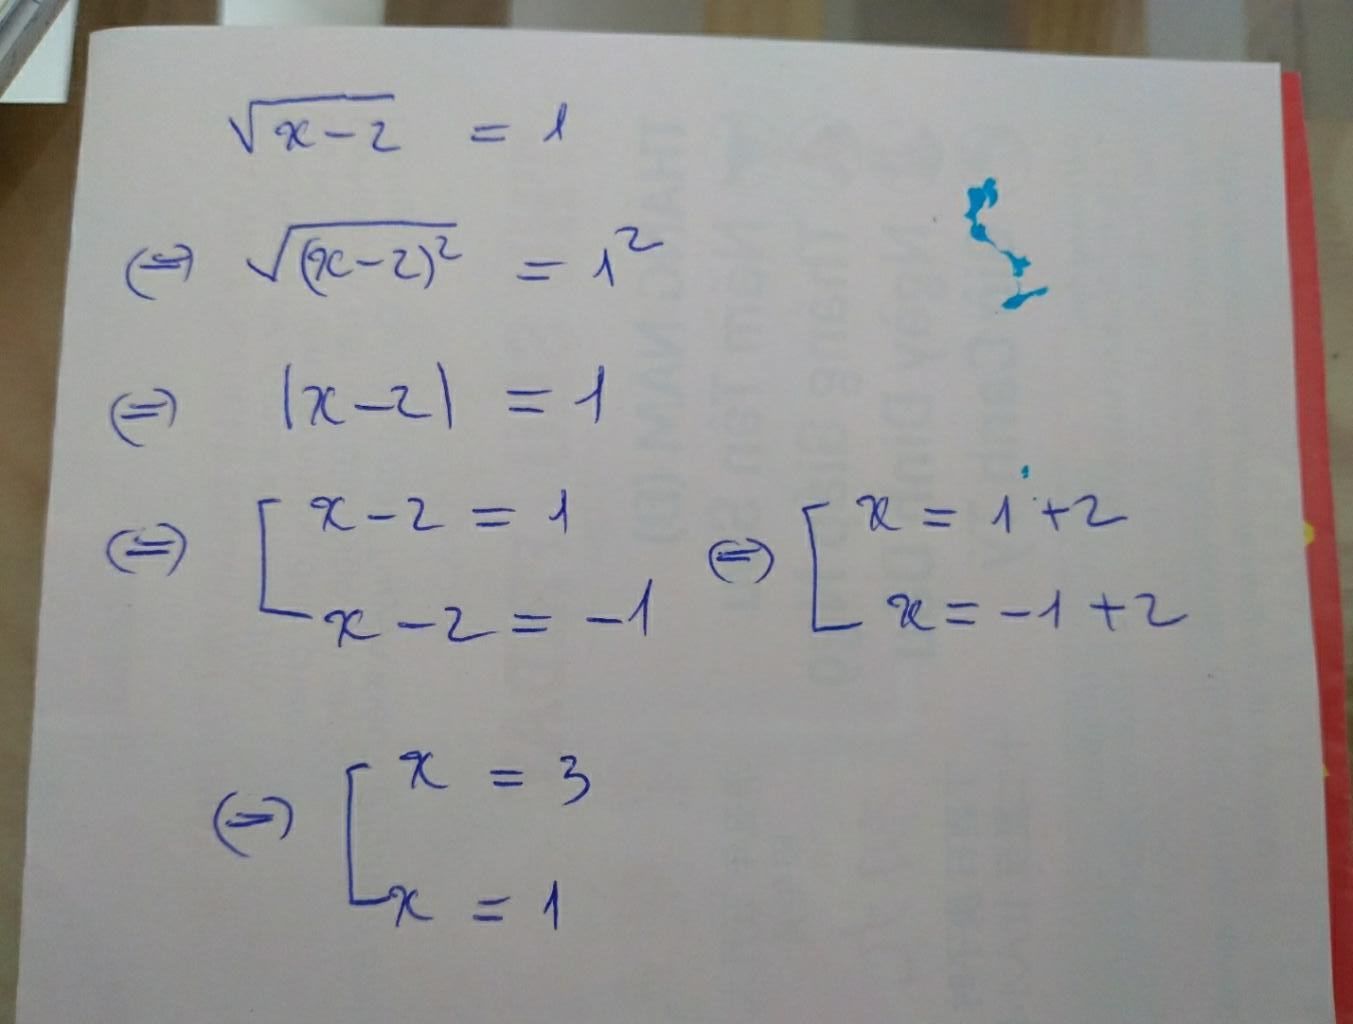 √(x-2) = 1
(=) √((x-2)²) = 1²
(=) |x-2| = 1
(=) [ x-2 = 1 (=) [ x = 1+2
x-2 = -1 x = -1+2
(=) [ x = 3
x = 1